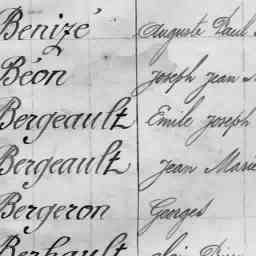 Benizé Auguste Paul
Béon Joseph Jean M
Bergeault Emile Joseph
Bergeault Jean Marie
Bergeron Georges
Berhault Alain Pierre